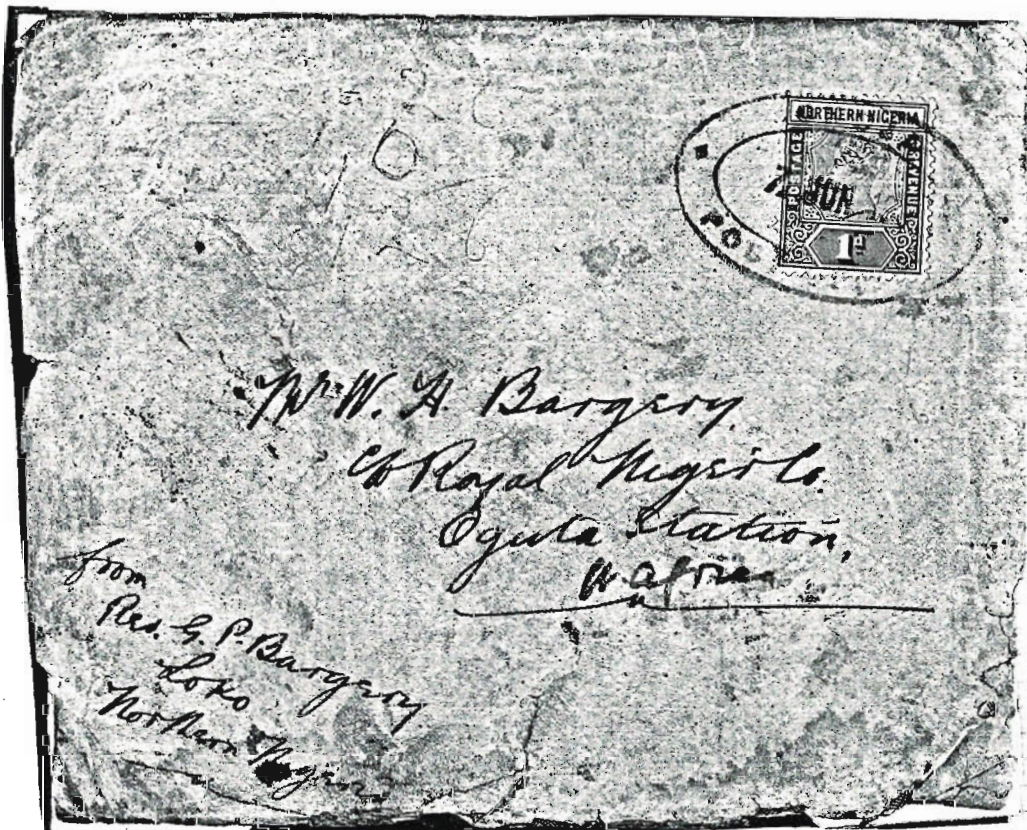 NORTHERN NIGERIA
POSTAGE
REVENUE
JUN
1d
PO
Mr W. H. Bargery.
c/o Royal Niger Co.
Oguta Station,
W. Africa
from
Rev. G. P. Bargery
Loko
Northern Nigeria